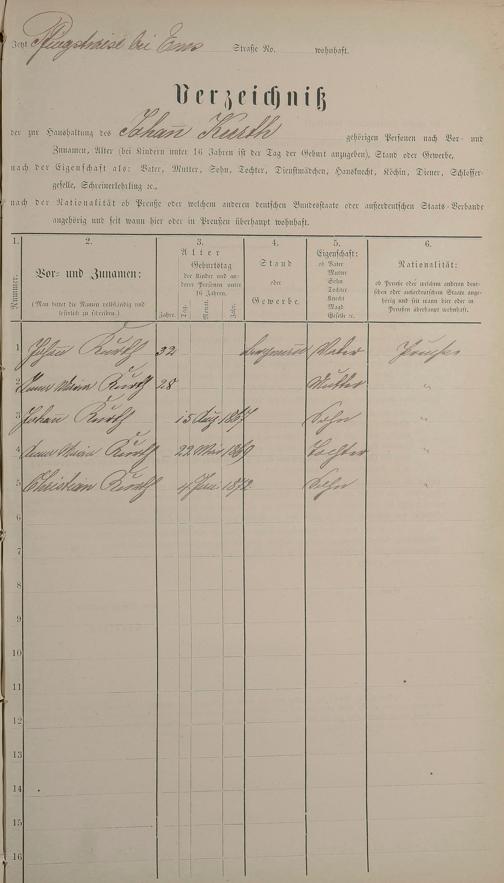 Jetzt Pfingstwiese bei Ems Straße No. wohnhaft.
Verzeichniß
der zur Haushaltung des Johann Kurth gehörigen Personen nach Vor- und
Zunamen, Alter (bei Kindern unter 16 Jahren ist der Tag der Geburt anzugeben), Stand oder Gewerbe,
nach der Eigenschaft als: Vater, Mutter, Sohn, Tochter, Dienstmädchen, Hausknecht, Köchin, Diener, Schlosser-
geselle, Schreinerlehrling ꝛc.,
nach der Nationalität ob Preuße oder welchem anderen deutschen Bundesstaate oder außerdeutschen Staats-Verbande
angehörig und seit wann hier oder in Preußen überhaupt wohnhaft.
1. 2. 3. 4. 5. 6.
Nummer.
Vor- und Zunamen:
(Man bittet die Namen vollständig und
leserlich zu schreiben.)
Alter
Jahre.
Geburtstag
der Kinder und an-
derer Personen unter
16 Jahren.
Tag. Monat. Jahr.
Stand
oder
Gewerbe.
Eigenschaft:
ob Vater
Mutter
Sohn
Tochter
Knecht
Magd
Geselle ꝛc.
Nationalität:
ob Preuße oder welchem anderen deut-
schen oder außerdeutschen Staate ange-
hörig und seit wann hier oder in
Preußen überhaupt wohnhaft.
1 Johann Kurth 32 Vater Preuße
2 Anna Maria Kurth 28 Mutter "
3 Johann Kurth 15 Aug 1867 Sohn "
4 Anna Maria Kurth 22 1869 Tochter "
5 Christian Kurth 4 1872 Sohn "
6
7
8
9
10
11
12
13
14
15
16